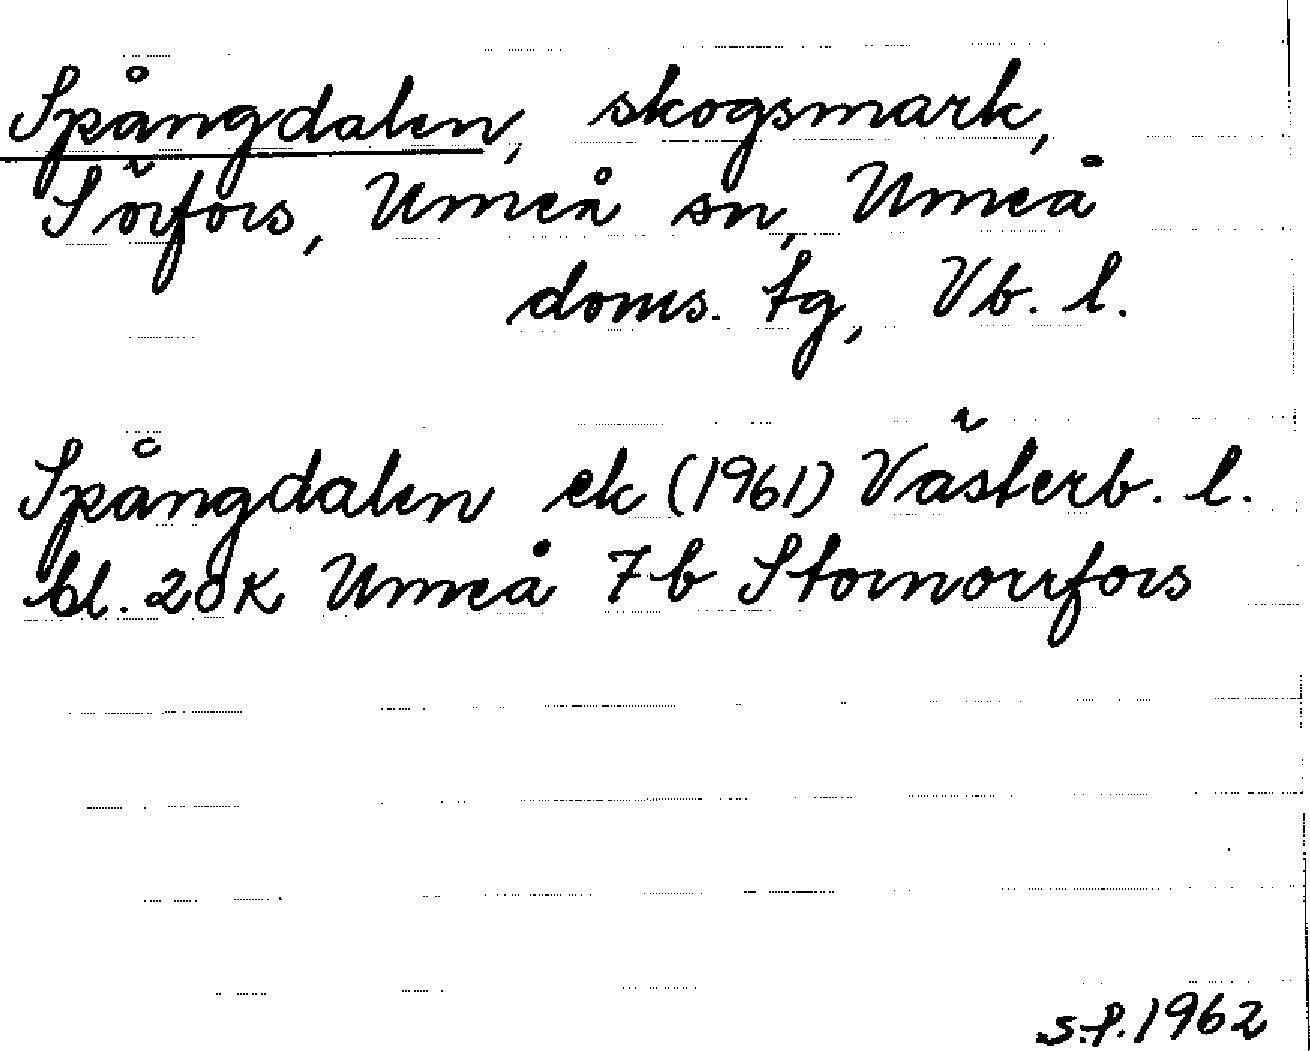 Spångdalen, skogsmark,
Sörfors, Umeå sn, Umeå
doms. tg, Vb. l.
Spångdalen ek (1961) Västerb. l.
bl. 20K Umeå 7b Stornorrfors
s.f. 1962